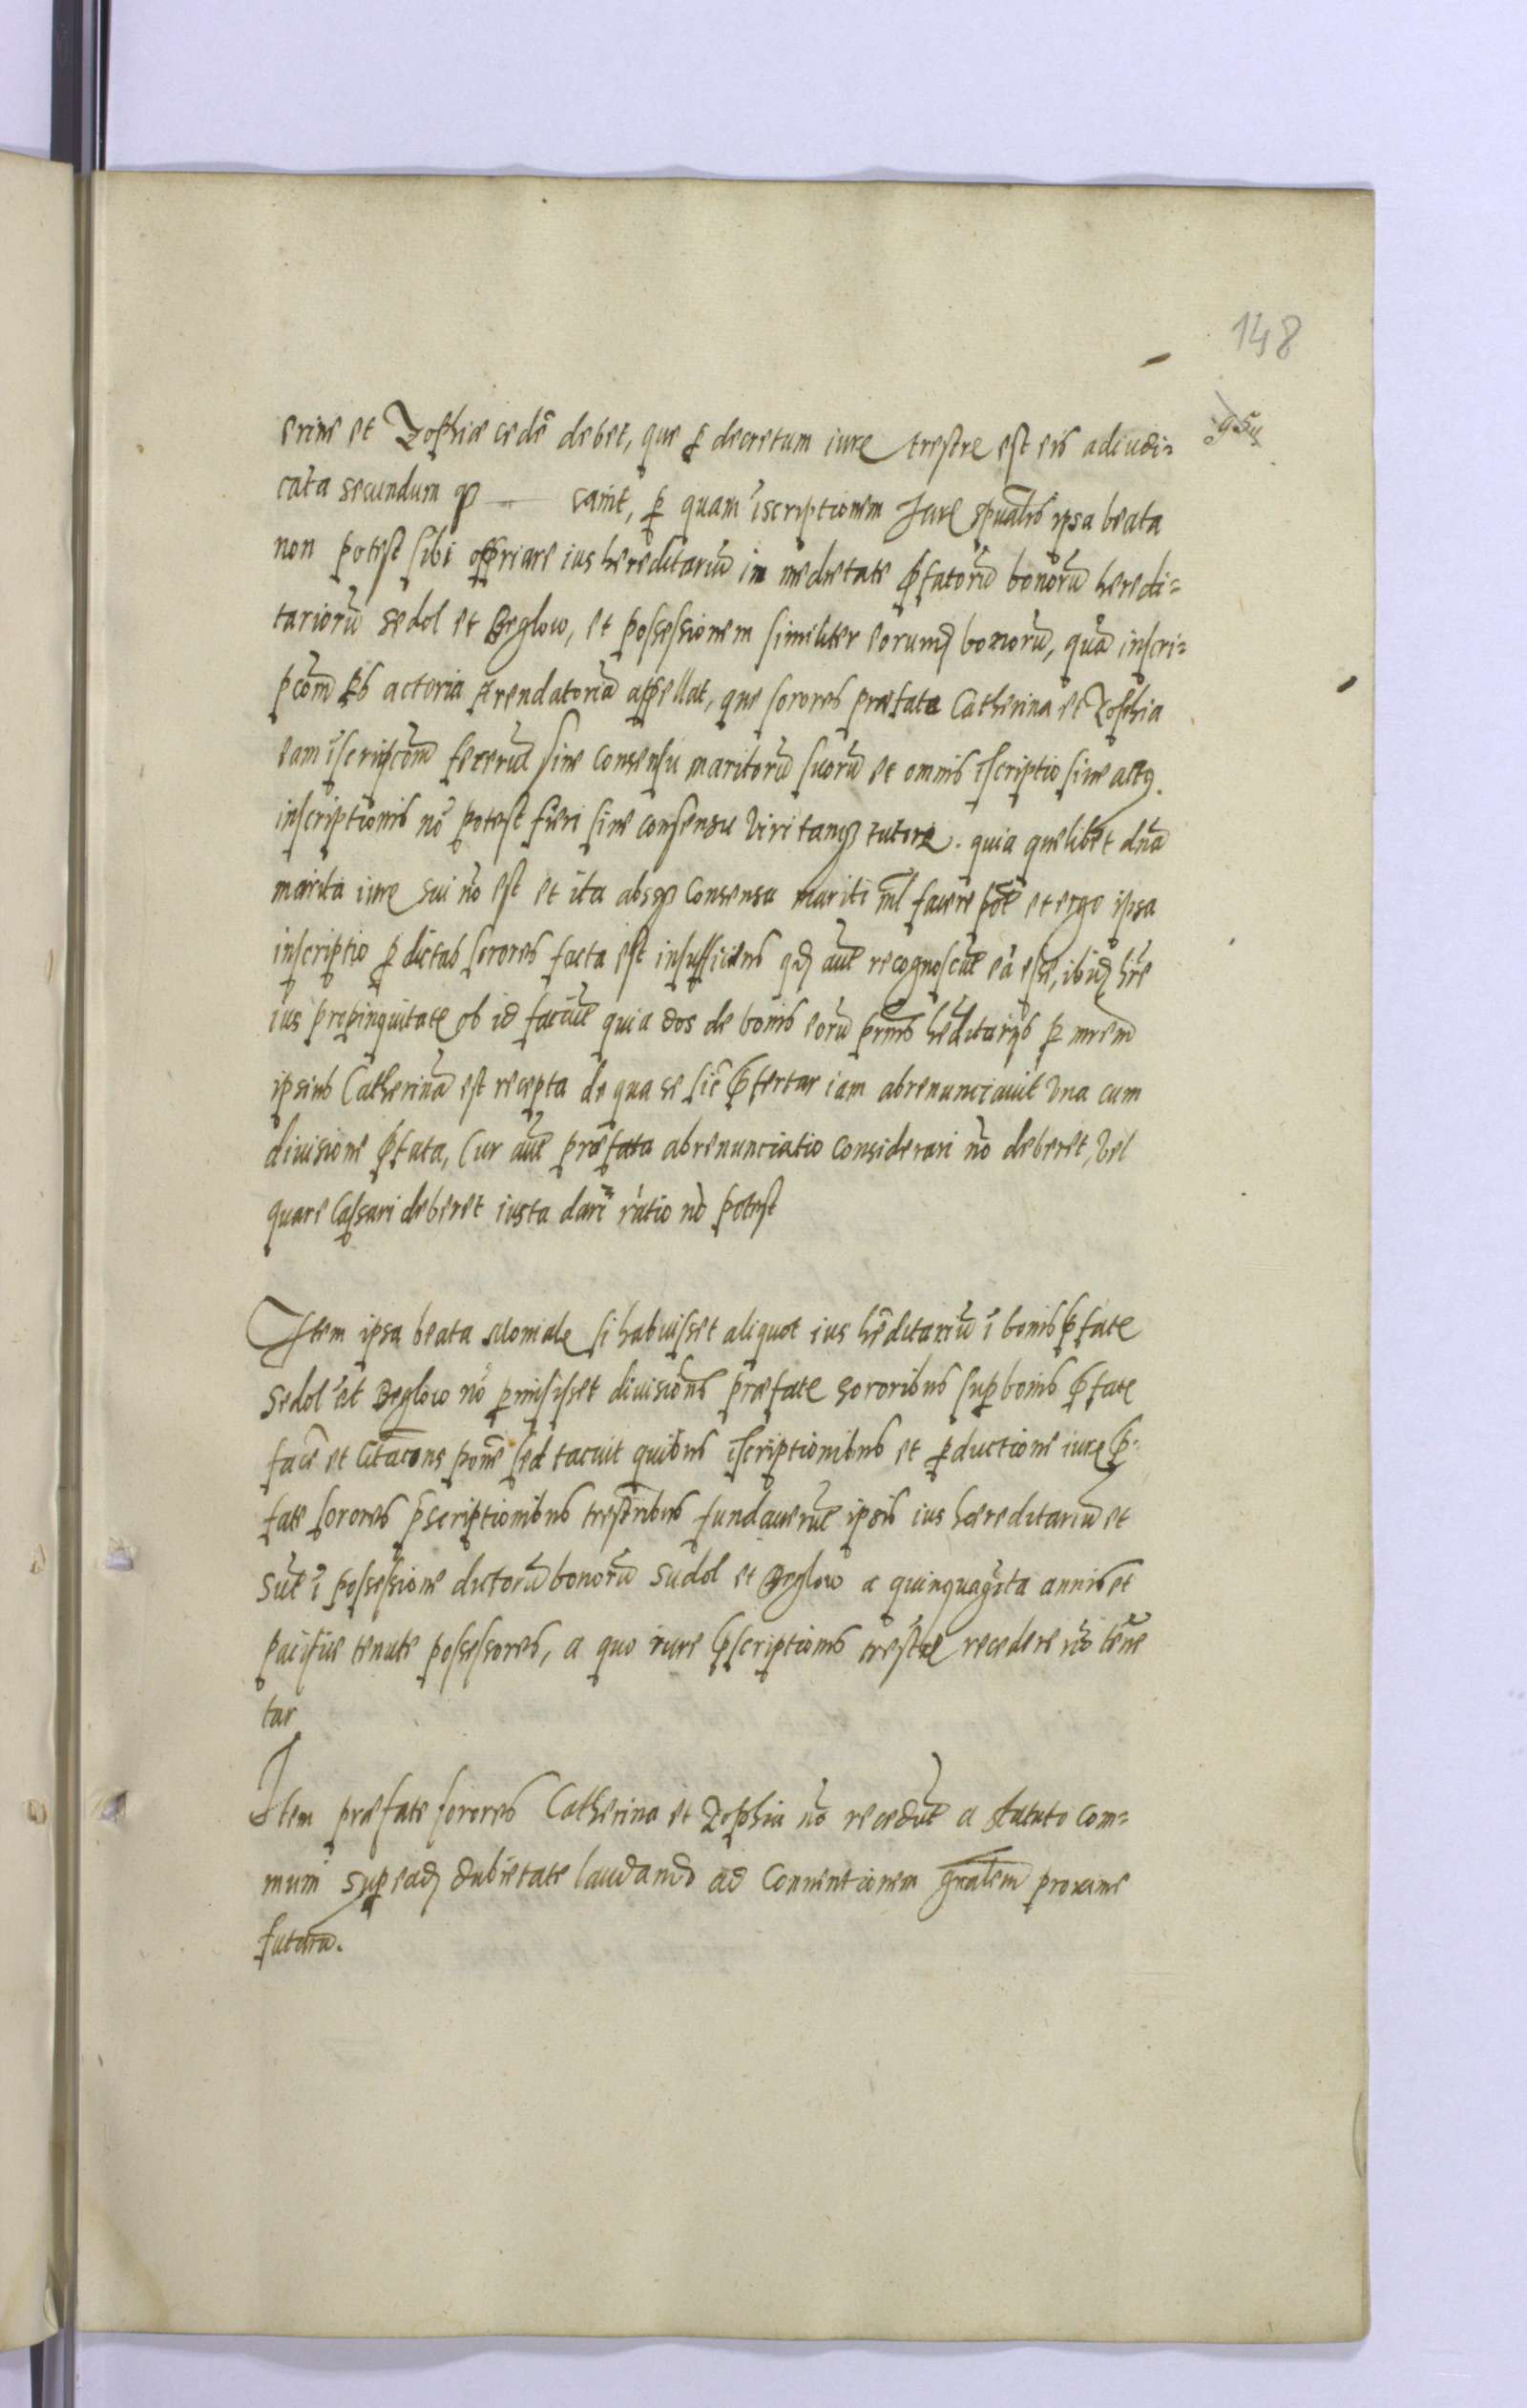 148
erine et Zophiæ cedē debet, que ꝑ decretum iure trestre est eis adiudi=
cata secundum qꝫ — canit, ꝑ quam iscriptionem Jure spualis ipsa beata
non potest sibi appriare ius hereditariū in medietate p̄fatorū bonorū heredi=
tariorū Sedol et Beglow, et possessionem similiter eorumq bonorū, quā inscri=
pcōm actoria Arendatoriā appellat, que sorores præfata Catherina et Zophia
eam iscripcōm fecerūt sine consensu maritorū suorū et omnis iscriptio sine
inscriptionis nō potest fieri sine consensu Viri tanqꝫ tutore. quia quelibet dna
marita iure sui nō est et ita absqꝫ consensu mariti nīl facere pōt et ergo ipsa
inscriptio ꝑ dictas sorores facta est insufficiens qꝫ aūt recognoscūt eā esse, ibidꝫ hr̄e
ius propinquitate ob id faciūt quia dos de bonis eorū hēditarijs ꝑ mrem
ipsius Catherinā est recepta de qua se sic p̄fertur iam abrenunciavit Una cum
divisione p̄fata, Cur aūt præfata abrenunciatio considerari nō deberet, Vel
quare Cassari deberet iusta dari ratio nō potest
Item ipsa beata Moniale si habuisset aliquot ius hēditariū ī bonis p̄fate
Sedol et Beglow nō ꝑmisisset divisionis præfate sororibus suꝑ bonis p̄fate
facē et Citacōns ponē sed tacuit quibus iscriptionibus et ꝑductione iure p̄=
fate sorores p̄scriptionibus trestribus fundaverūt ipsis ius hæreditariū et
sūt ī possessione dictorū bonorū Sudol et Beglow a quinquagīta annis et
pacifice tenute possessores, a quo iure p̄scriptionis trestre recedere nō tēne
tur
Item præfate sorores Catherina et Zophia nō recedūt a statuto com=
muni suꝑ eadꝫ dubietate laudando ad Conventionem gnalem proxime
futurā.